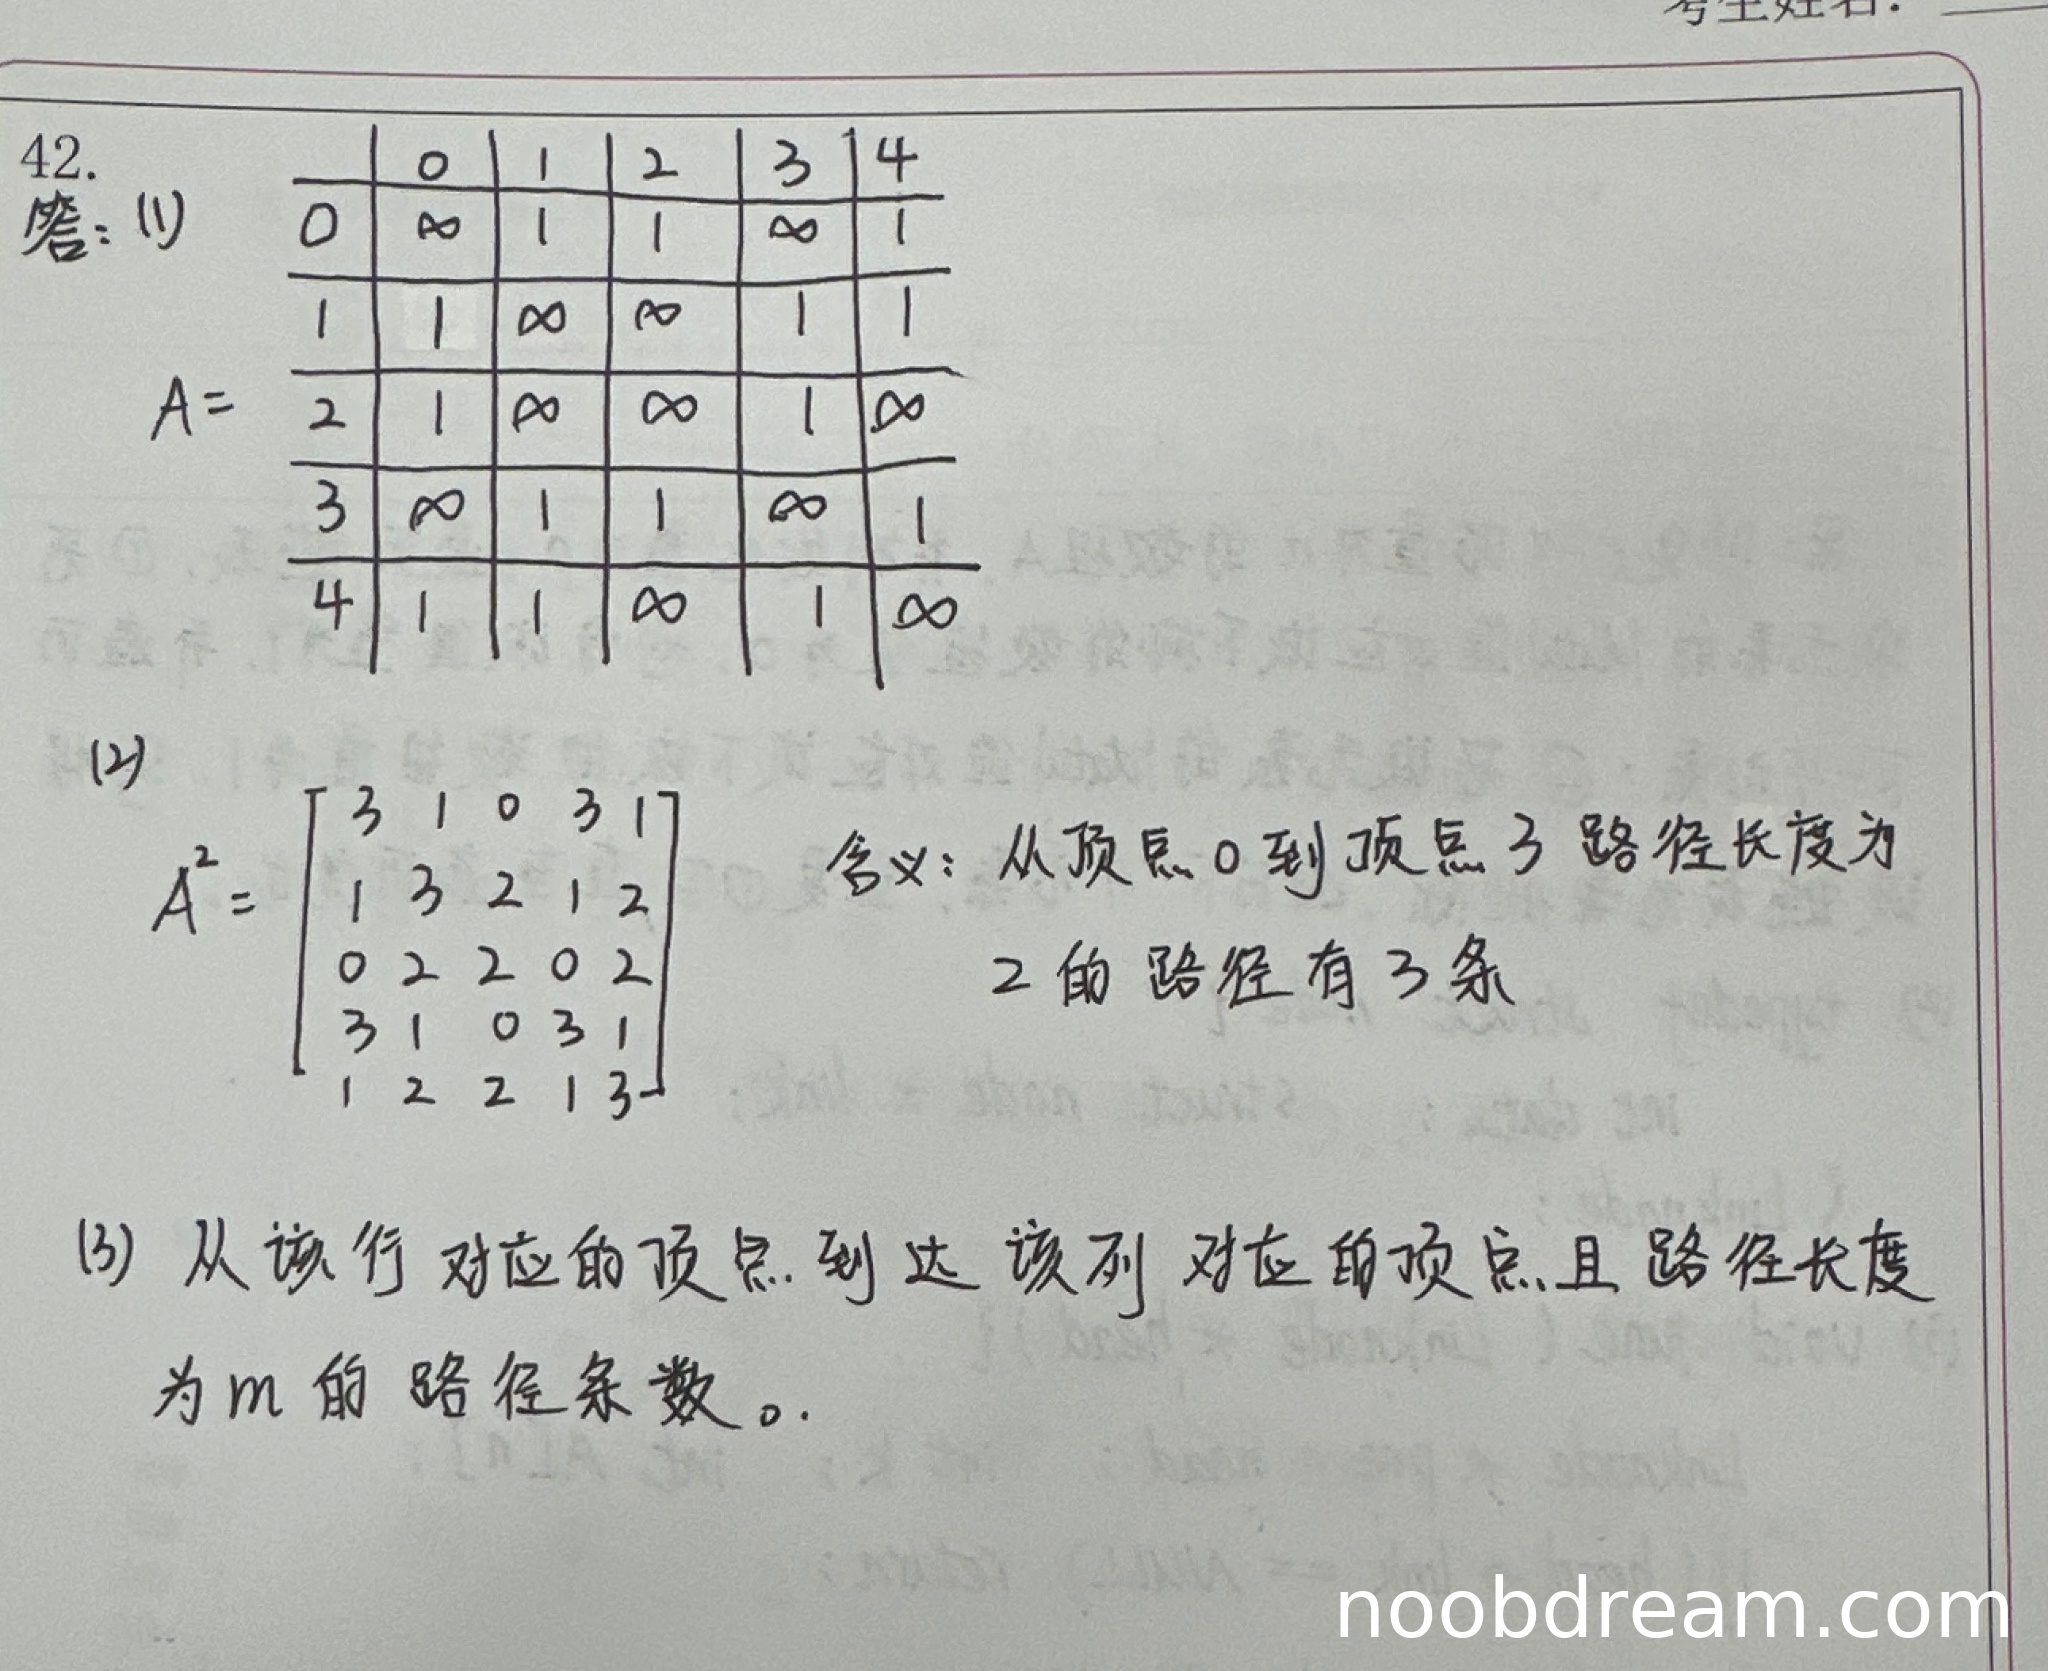 考生姓名:
42.
答: (1)
0 1 2 3 4
0 ∞ 1 1 ∞ 1
1 1 ∞ ∞ 1 1
A= 2 1 ∞ ∞ 1 ∞
3 ∞ 1 1 ∞ 1
4 1 1 ∞ 1 ∞
(2)
A²=
3 1 0 3 1
1 3 2 1 2
0 2 2 0 2
3 1 0 3 1
1 2 2 1 3
含义: 从顶点0到顶点3路径长度为
2的路径有3条
(3) 从该行对应的顶点到达该列对应的顶点且路径长度
为m的路径条数。.
noobdream.com